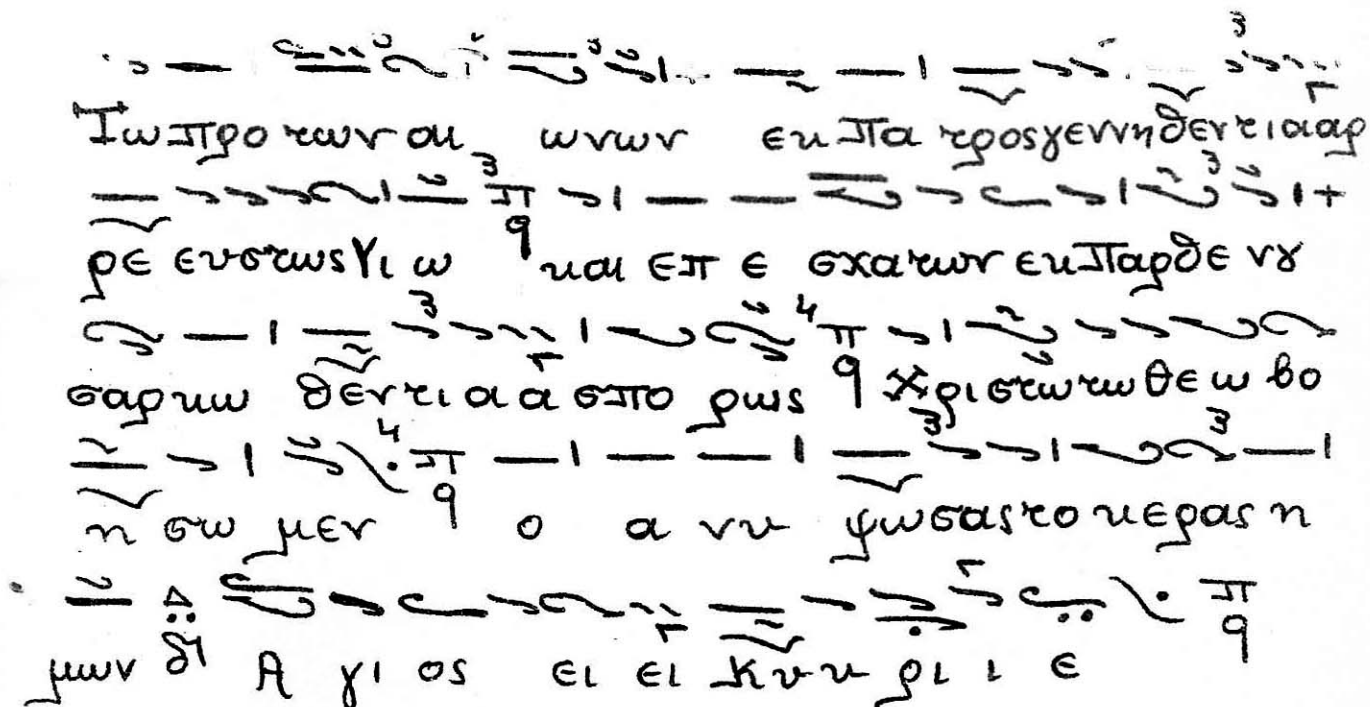 Τω προ των αι ωνων εκ Πα τροσγεννηθεντιααρ
ρε ευστωσΥιω και επ ε σχατων εκ Παρθε νȣ
σαρκω θεντι α α σπο ρως Χριστωτωθεω βο
η σω μεν ο α νυ ψωσαςτο κερας η
μων Α γι ος ει ει Κυ υ ρι ι ε